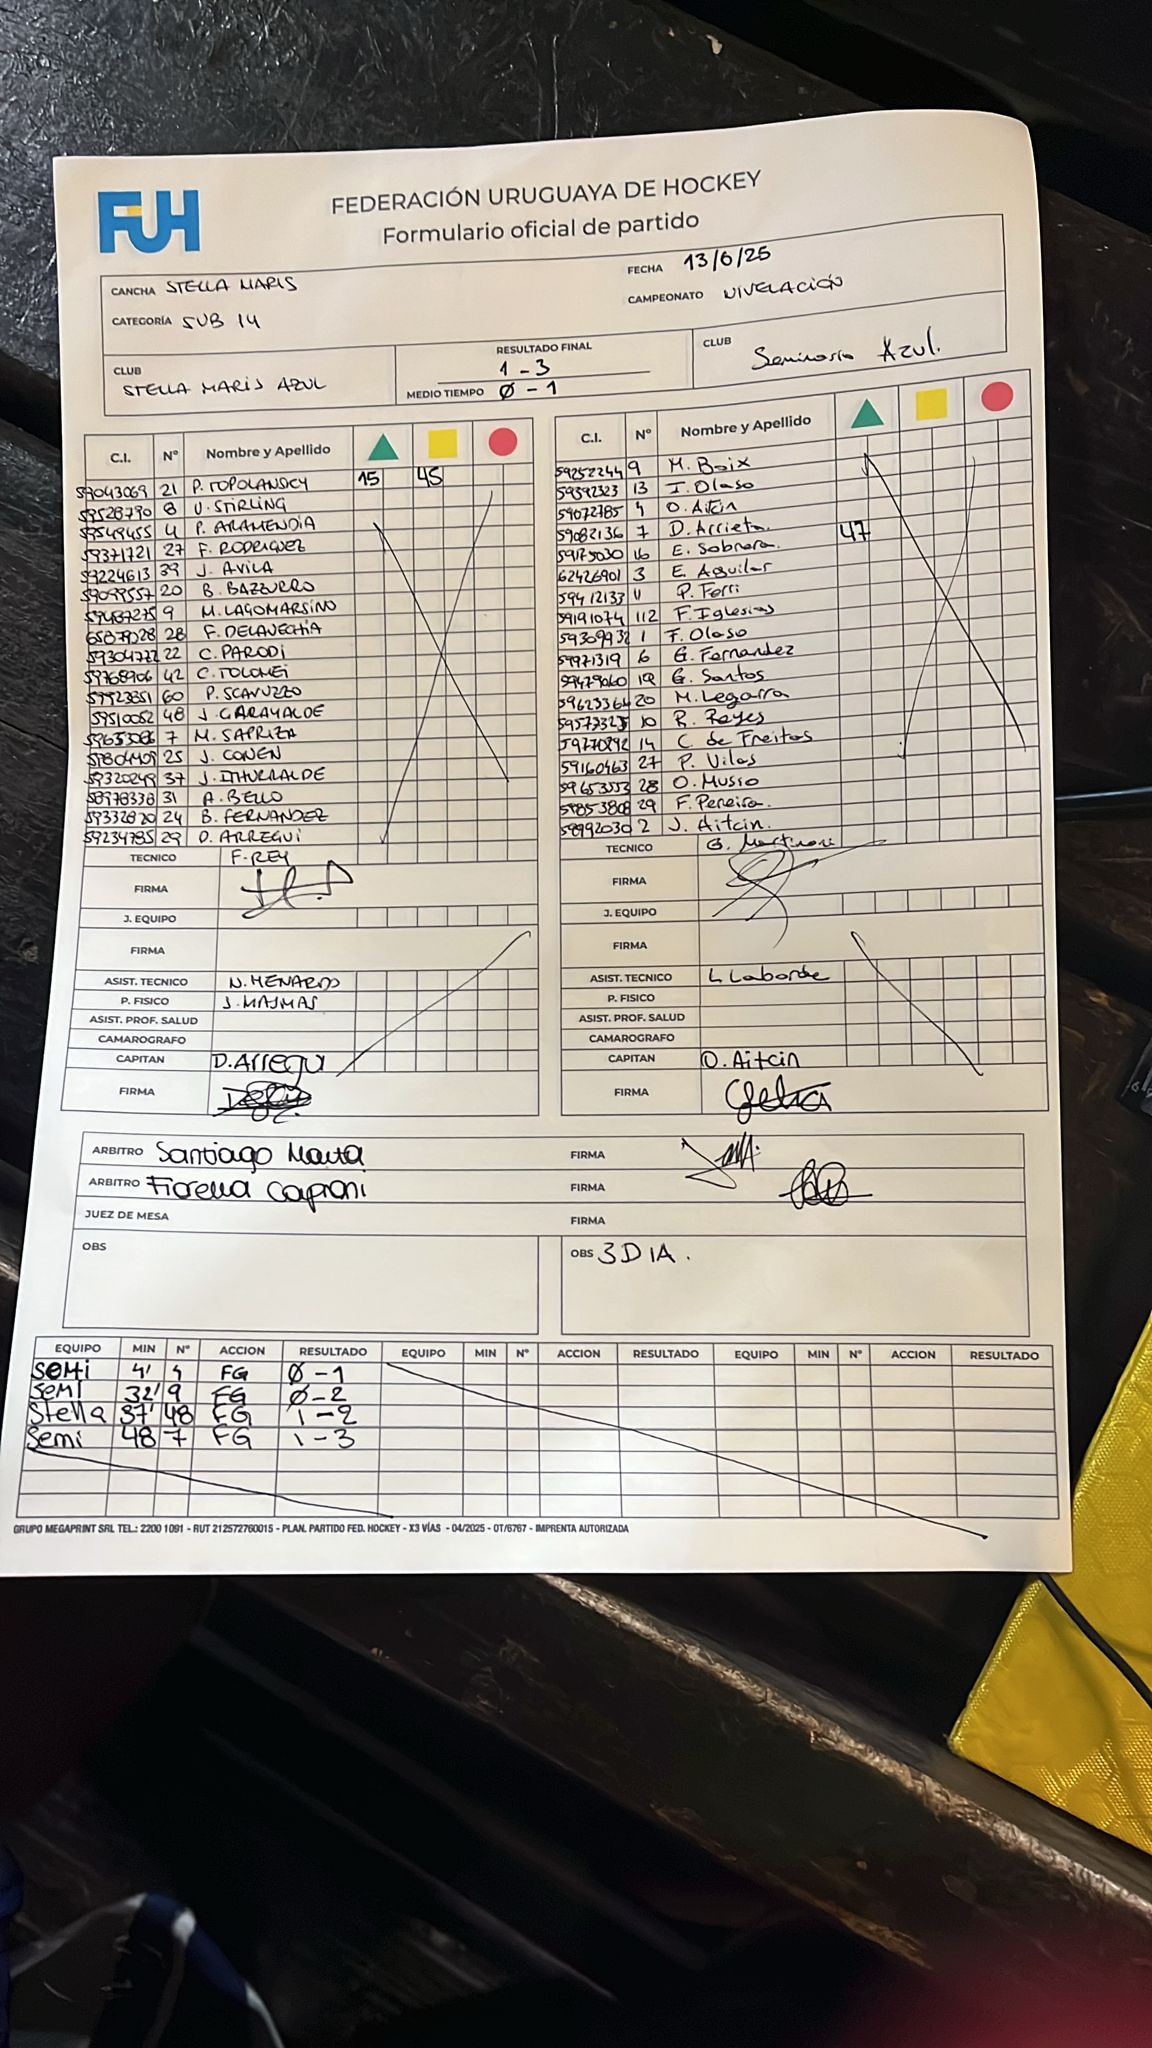 FUH
FEDERACIÓN URUGUAYA DE HOCKEY
Formulario oficial de partido
CANCHA STELLA MARIS
FECHA 13/6/25
CATEGORÍA SUB 14
CAMPEONATO NIVELACIÓN
CLUB STELLA MARIS AZUL
RESULTADO FINAL 1-3
MEDIO TIEMPO Ø-1
CLUB Seminario Azul.
C.I. Nº Nombre y Apellido
59043069 21 P. TOPOLANSKY 15 45
59528790 8 V. STIRLING
59549455 4 P. ARAMENDIA
59371721 27 F. RODRIGUEZ
59224613 39 J. AVILA
59099557 20 B. BAZZURRO
59487275 9 M. LAGOMARSINO
28 F. DELAVECHIA
59304722 22 C. PARODI
59768906 42 C. TOLOMEI
59923851 60 P. SCAVUZZO
59510052 48 J. GARAYALDE
7 M. SAPRIZA
25 J. CONEN
59320249 37 J. ITHURRALDE
58978338 31 A. BELLO
59332820 24 B. FERNANDEZ
59234785 29 D. ARREGUI
TECNICO F. REY
FIRMA
J. EQUIPO
FIRMA
ASIST. TECNICO N. MENARDO
P. FISICO J. MAJMAS
ASIST. PROF. SALUD
CAMAROGRAFO
CAPITAN D. Arregui
FIRMA
C.I. Nº Nombre y Apellido
59252244 9 M. Boix
59392323 13 I. Olaso
59072785 4 O. Aitcin
59082136 7 D. Arrieta 47
59175030 16 E. Sobrera.
62426901 3 E. Aguilar
59412133 11 P. Ferri
59191074 112 F. Iglesias
59309932 1 F. Olaso
59971319 6 G. Fernandez
59479060 19 G. Santos
59623364 20 M. Legarra
59573325 10 R. Reyes
59770892 14 C. de Freitas
59160463 27 P. Vilas
59653553 28 O. Musso
59853808 29 F. Pereira.
58992030 2 J. Aitcin.
TECNICO G. Martinoni
FIRMA
J. EQUIPO
FIRMA
ASIST. TECNICO L. Laborde
P. FISICO
ASIST. PROF. SALUD
CAMAROGRAFO
CAPITAN O. Aitcin
FIRMA
ARBITRO Santiago FIRMA
ARBITRO Fiorella Caproni FIRMA
JUEZ DE MESA FIRMA
OBS
OBS 3 DIA.
EQUIPO MIN Nº ACCION RESULTADO EQUIPO MIN Nº ACCION RESULTADO EQUIPO MIN Nº ACCION RESULTADO
SEMI 4' 4 FG Ø-1
SEMI 32' 9 FG Ø-2
Stella 37' 48 FG 1-2
Semi 48 7 FG 1-3
GRUPO MEGAPRINT SRL TEL.: 2200 1091 - RUT 212572760015 - PLAN. PARTIDO FED. HOCKEY - X3 VÍAS - 04/2025 - OT/6767 - IMPRENTA AUTORIZADA